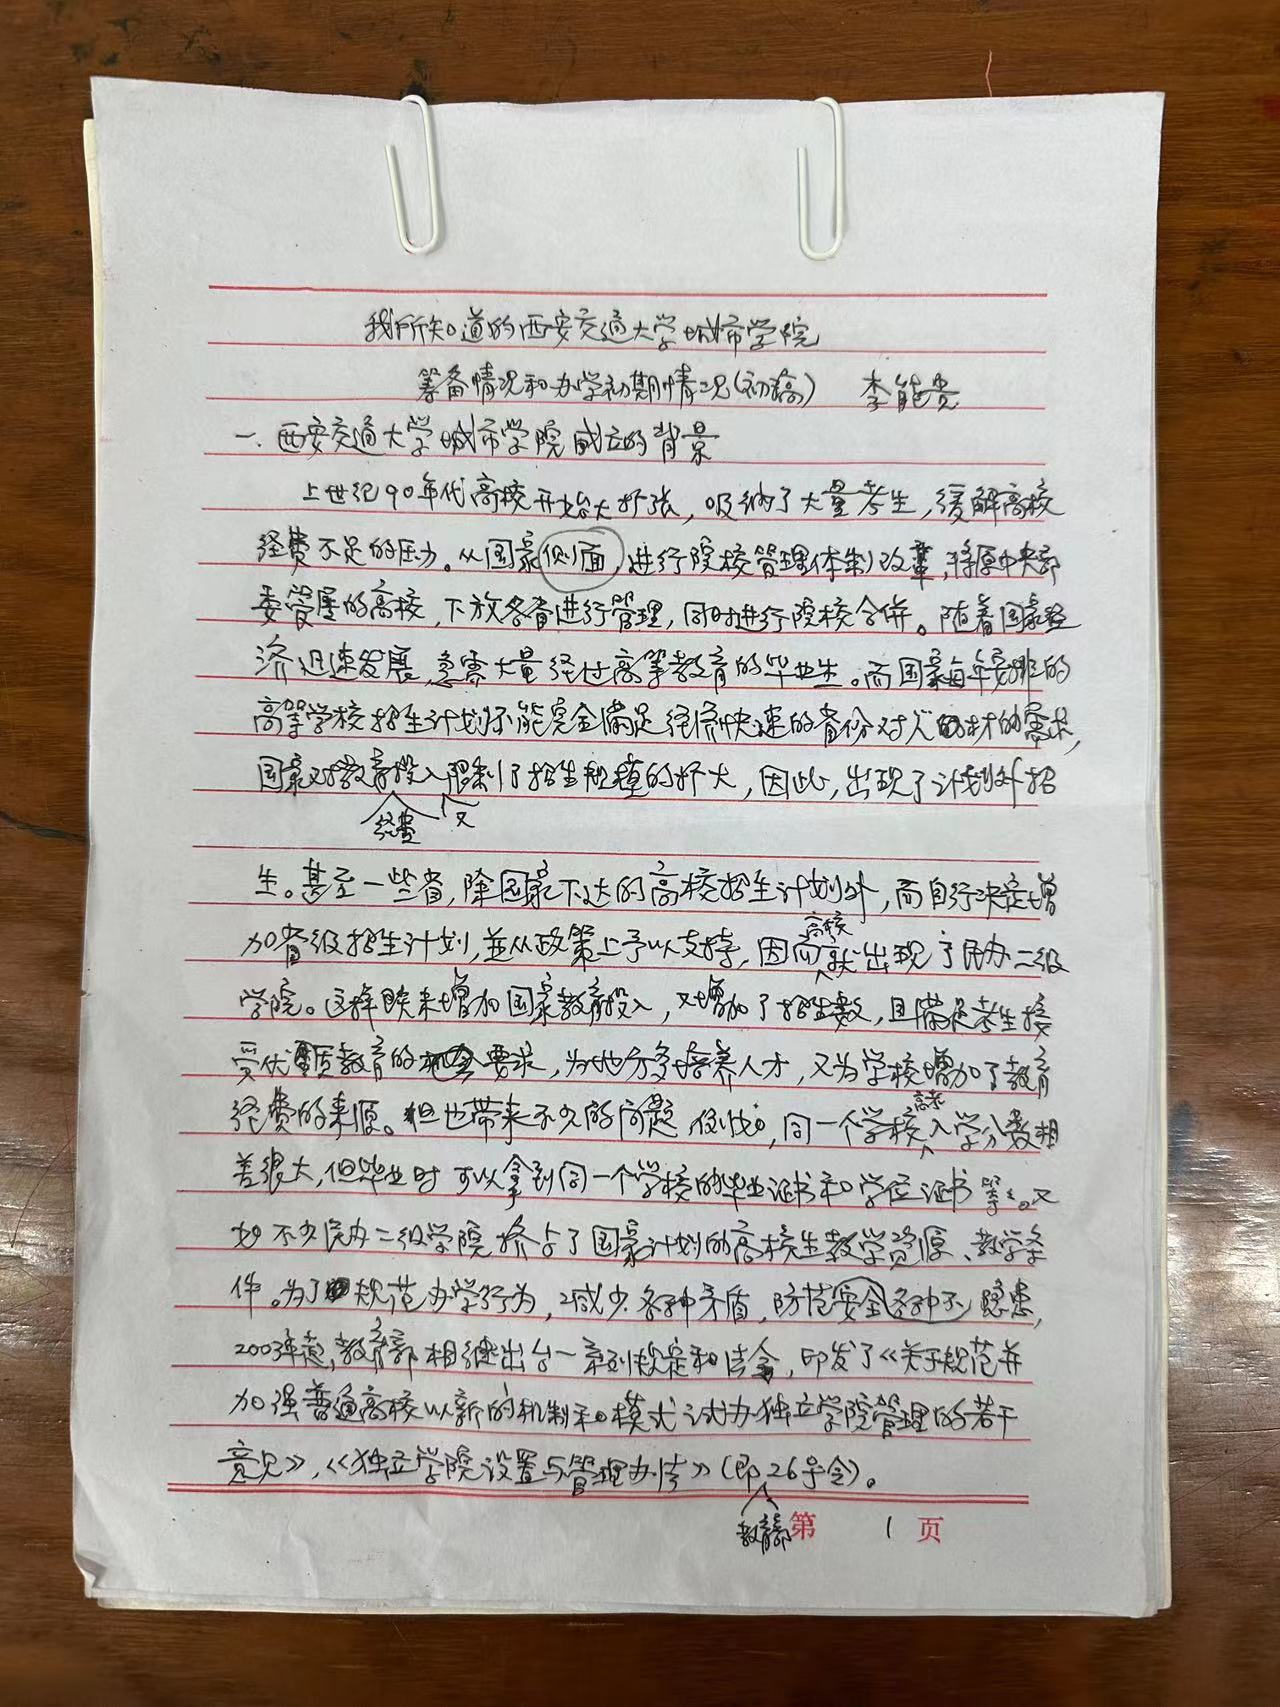 我所知道的西安交通大学城市学院
筹备情况和办学初期情况(初稿) 李能贵
一.西安交通大学城市学院成立的背景
上世纪90年代高校开始大扩张,吸纳了大量考生,缓解高校
经费不足的压力。从国家侧面,进行院校管理体制改革,将原中央部
委管属的高校,下放各省进行管理,同时进行院校合併。随着国家经
济迅速发展,急需大量经过高等教育的毕业生。而国家每年安排的
高等学校招生计划不能完全满足经济快速的省份对人材的需求,
国家对教育投入限制了招生规模的扩大,因此,出现了计划外招
经费 又
生。甚至一些省,除国家下达的高校招生计划外,而自行决定增
高校
加省级招生计划,並从政策上予以支持,因而就出现了民办二级
学院。这样既未增加国家教育投入,又增加了招生数,且满足考生接
受优质教育的要求,为地方多培养人才,又为学校增加了教育
高考
经费的来源。但也带来不少的问题,例如,同一个学校入学分数相
差很大,但毕业时可以拿到同一个学校的毕业证书和学位证书等等。又
如不少民办二级学院挤占了国家计划的高校生教学资源、教学条
件。为了规范办学行为,减少各种矛盾,防范安全各种不隐患,
2003年起,教育部相继出台一系列规定和法令,印发了《关于规范并
加强普通高校以新的机制和模式试办独立学院管理的若干
意见》,《独立学院设置与管理办法》(即26号令)。
教育部
第 1 页